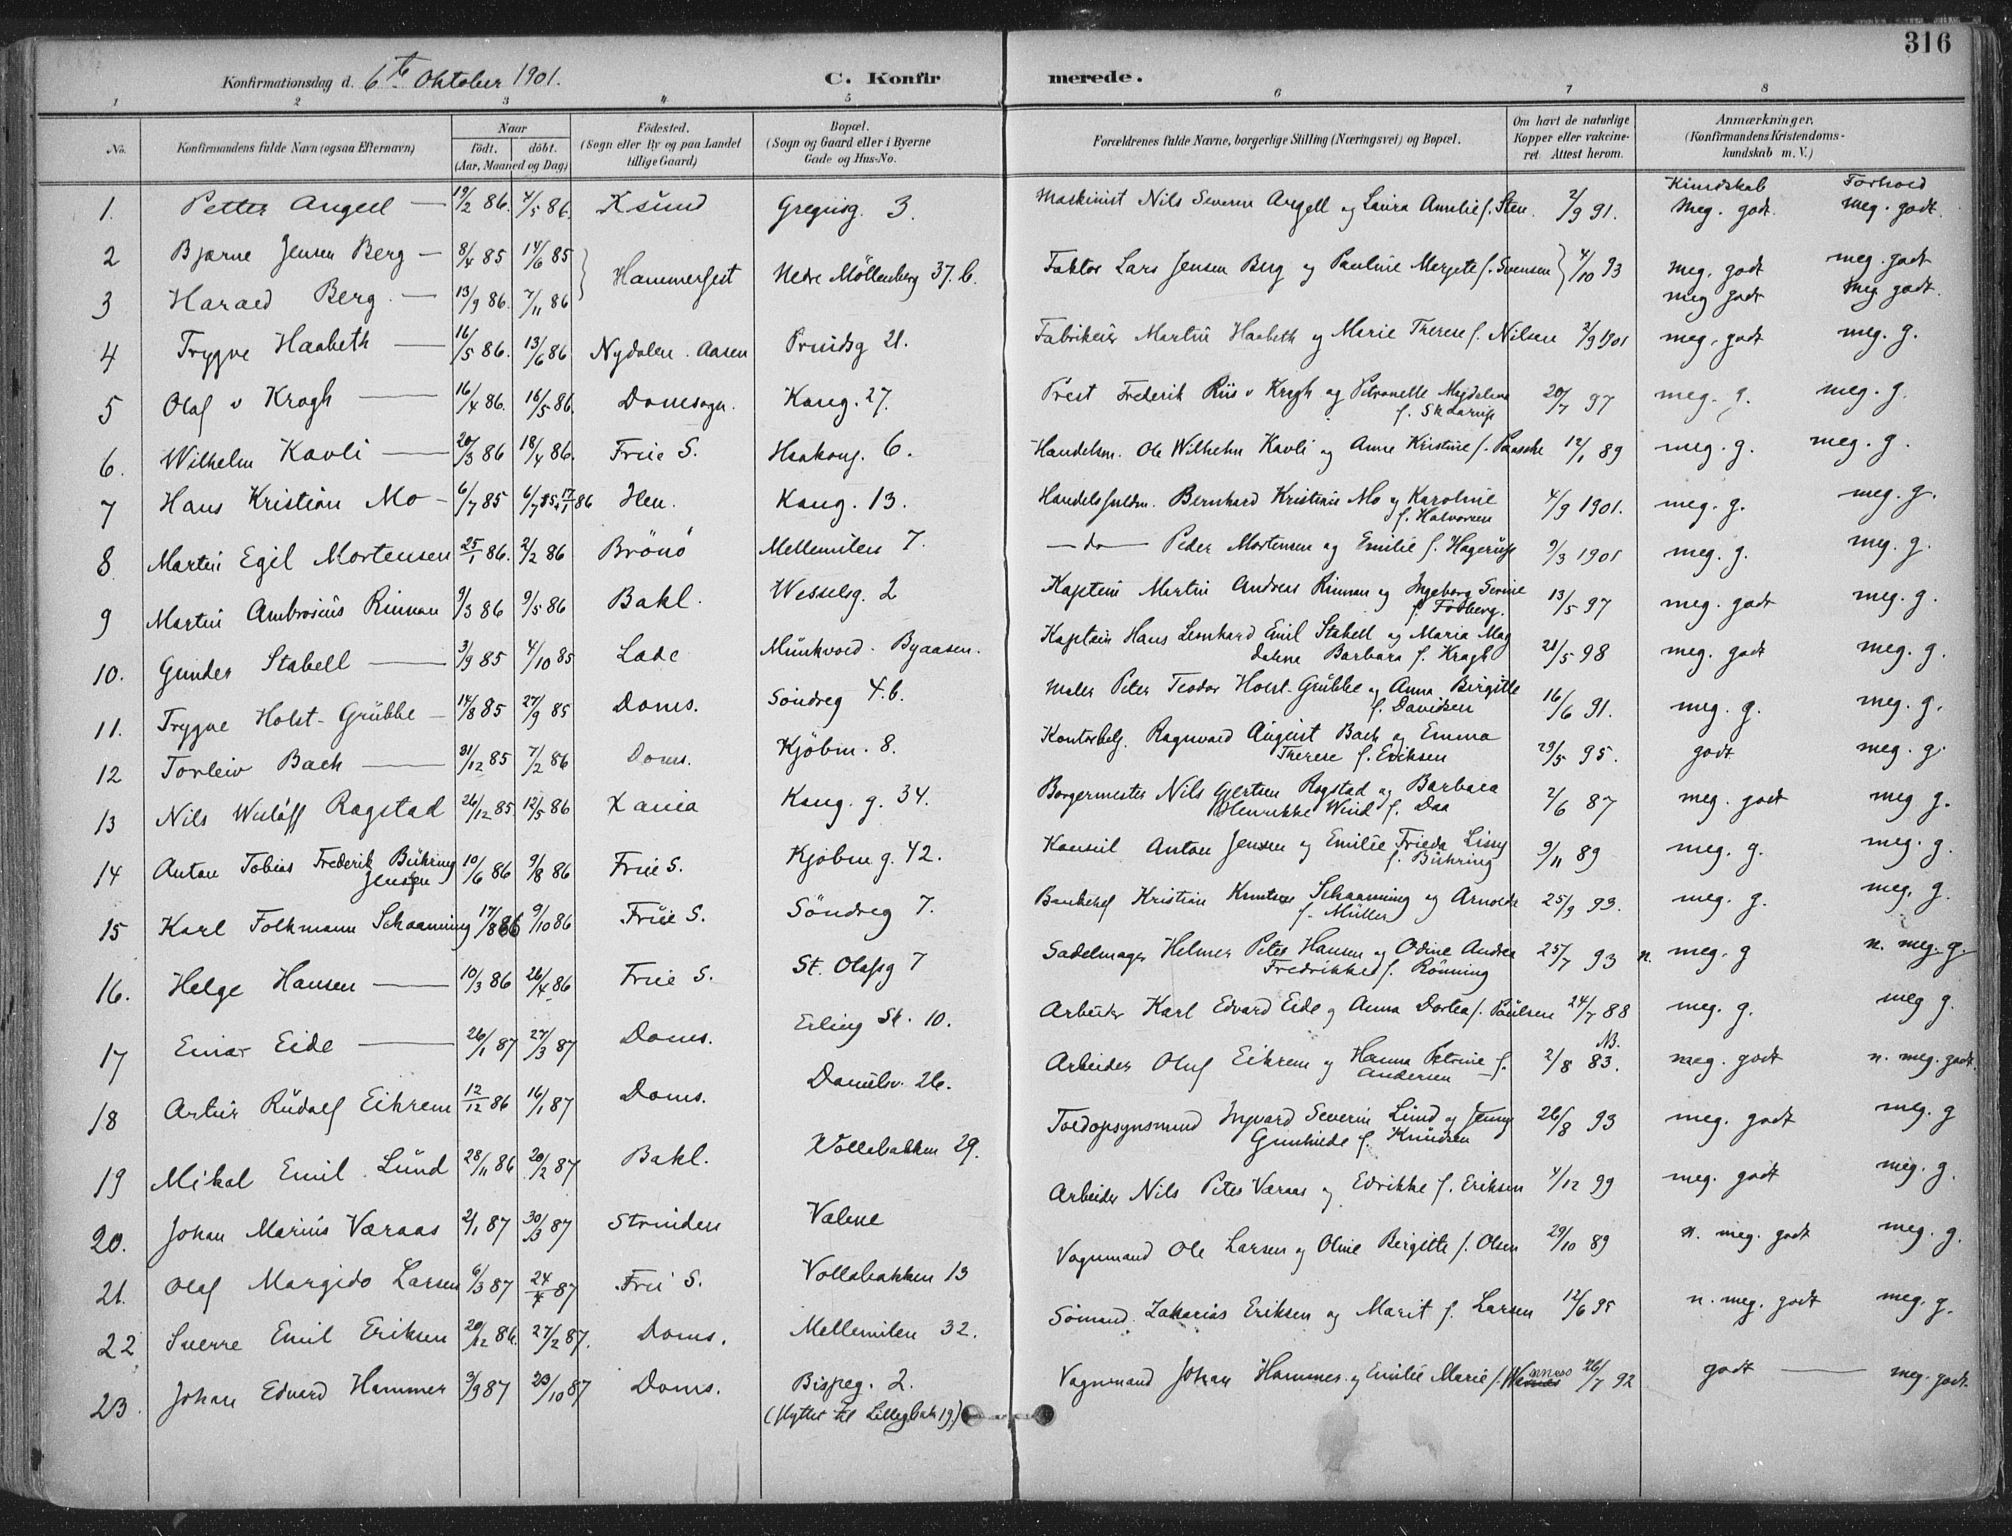 316
Konfirmationsdag d. 6te Oktober 1901. C. Konfirmerede.
1 2 3 4 5 6 7 8
No. Konfirmandens fulde Navn (ogsaa Efternavn) Naar født. døbt. (Aar, Maaned og Dag) Födested. (Sogn eller By og paa Landet tillige Gaard) Bopæl. (Sogn og Gaard eller i Byerne Gade og Hus-No. Forældrenes fulde Navne, borgerlige Stilling (Næringsvei) og Bopæl. Om havt de naturlige Kopper eller vakcineret. Attest herom. Anmærkninger. (Konfirmandens Kristendomskundskab m. V.)
Kundskab Forhold
1. Petter Angell 19/2 86. 4/5 86. Ksund Gregusg. 3. Maskinist Nils Severin Angell og Laura Amelie f. Sten. 2/9 91. Meg. godt. meg. godt.
2 Bjarne Jensen Berg 8/4 85 14/6 85 Hammerfest Nedre Möllenberg 37. b. Faktor Lars Jensen Berg og Pauline Merjete f. Svensen 4/10 93 meg. godt meg. godt
3 Harald Berg 13/9 86. 7/11 86 meg godt meg godt.
4 Trygve Haabeth 16/5 86. 13/6 86 Nydalen. Aasen Prindsg 21. Fabrikeier Martin Haabeth og Marie Therese f. Nilsen 2/9 1901 meg. godt meg. g.
5 Olaf v Krogh 16/4 86. 16/5 86. Domsogn. Kong. 27. Prest Frederik Riis v Krogh og Petronelle Magdalene f. Sklarup 20/7 97 meg. g. meg. g.
6. Wilhelm Kavli 20/3 86 18/4 86. Frue S. Haakong. 6. Handelsm. Ole Wilhelm Kavli og Anne Kristine f. Paasche 12/1 89 meg. g. meg. g.
7 Hans Kristian Mo 6/7 85 6/7 85 17/1 86 Hen. Kong. 13. Handelsfuldm. Bernhard Kristian Mo og Karoline f. Halvorsen 4/9 1901. meg. g. meg. g.
8 Martin Egil Mortensen 25/1 86. 2/2 86 Brönö Mellemilen 7. do Peder Mortensen og Emilie f. Hagerup 9/3 1901 meg. g. meg. g.
9 Martin Ambrosius Rinnan 9/3 86 9/5 86 Bakl. Wesselsg. 2 Kaptein Martin Andreas Rinnan og Ingeborg Serine f. Forberg. 13/5 97 meg. godt meg. g.
10. Gunder Stabell 3/9 85 4/10 85 Lade Munkvold. Byaasen. Kaptein Hans Leonhard Emil Stabell og Maria Magdalene Barbara f. Krogh 21/5 98 meg. godt meg. g.
11. Trygve Holst-Grübbe 14/8 85 27/9 85 Doms. Söndreg 4. b. Maler Peter Teodor Holst-Grübbe og Anna Birgitte f. Davidsen 16/6 91. meg. g. meg. g.
12 Torleiv Bach 31/12 85 7/2 86 Doms. Kjöbm. 8. Kontorbetj. Ragnvald August Bach og Emma Therese f. Eriksen 23/5 95. godt meg. g.
13 Nils Wulff Rogstad 26/12 85. 12/5 86 Xania Kong. g. 34. Borgermester Nils Gjertsen Rogstad og Barbara Henrikke Wind f. Daa 2/6 87 meg. godt meg g.
14 Anton Tobias Frederik Bühring Jensen 10/6 86 9/8 86 Frue S. Kjöbm g. 42. Konsul Anton Jensen og Emilie Frieda Lissy f. Bühring 9/11 89 meg. g. meg. g.
15 Karl Folkmann Schaanning 17/8 86 9/10 86 Frue S. Söndreg 7. Bankchef Kristian Knutsen Schaanning og Arnolde f. Müller 25/9 93. meg. g. meg. g.
16. Helge Hansen 10/3 86 26/4 86 Frue S. St. Olafsg 7 Sadelmager Helmer Peter Hansen og Odine Andrea Fredrikke f. Rönning 25/7 93 n. meg. g n. meg. g.
17 Einar Eide 26/1 87 27/3 87 Doms. Erling Sk. 10. Arbeider Karl Edvard Eide og Anna Dortea f. Paulsen 24/7 88 meg. g. meg g.
18 Artur Rudolf Eikrem 12/12 86 16/1 87 Doms. Danielsv. 26. Arbeider Oluf Eikrem og Hanna Petrine f. Andersen 2/8 83. NB. meg. godt n. meg. godt.
19 Mikal Emil Lund 28/11 86 20/2 87 Bakl. Vollabakken 29. Toldopsynsmand Ingvard Severin Lund og Jenny Gunhilde f. Knudsen 26/8 93 meg. godt meg. g
20. Johan Marius Væraas 2/1 87 30/3 87 Strinden Valene Arbeider Nils Peter Væraas og Edrikke f. Eriksen 4/12 99 meg. godt meg. g.
21. Olaf Margido Larsen 6/3 87 24/4 87 Frue S. Vollabakken 13 Vognmand Ole Larsen og Oline Bergitte f. Olsen 29/10 89 n. meg. godt meg. g.
22 Sverre Emil Eriksen 20/12 86. 27/2 87. Doms. Mellemilen 32. Sömand. Zakarias Eriksen og Marit f. Larsen 12/6 95 n. meg. godt meg. g.
23. Johan Edvard Hammer 3/9 87 23/10 87 Doms. Bispeg. 2. (flyttet til Lillegbak 19) Vognmand Johan Hammer og Emilie Marie f. 26/7 92 godt meg. godt.